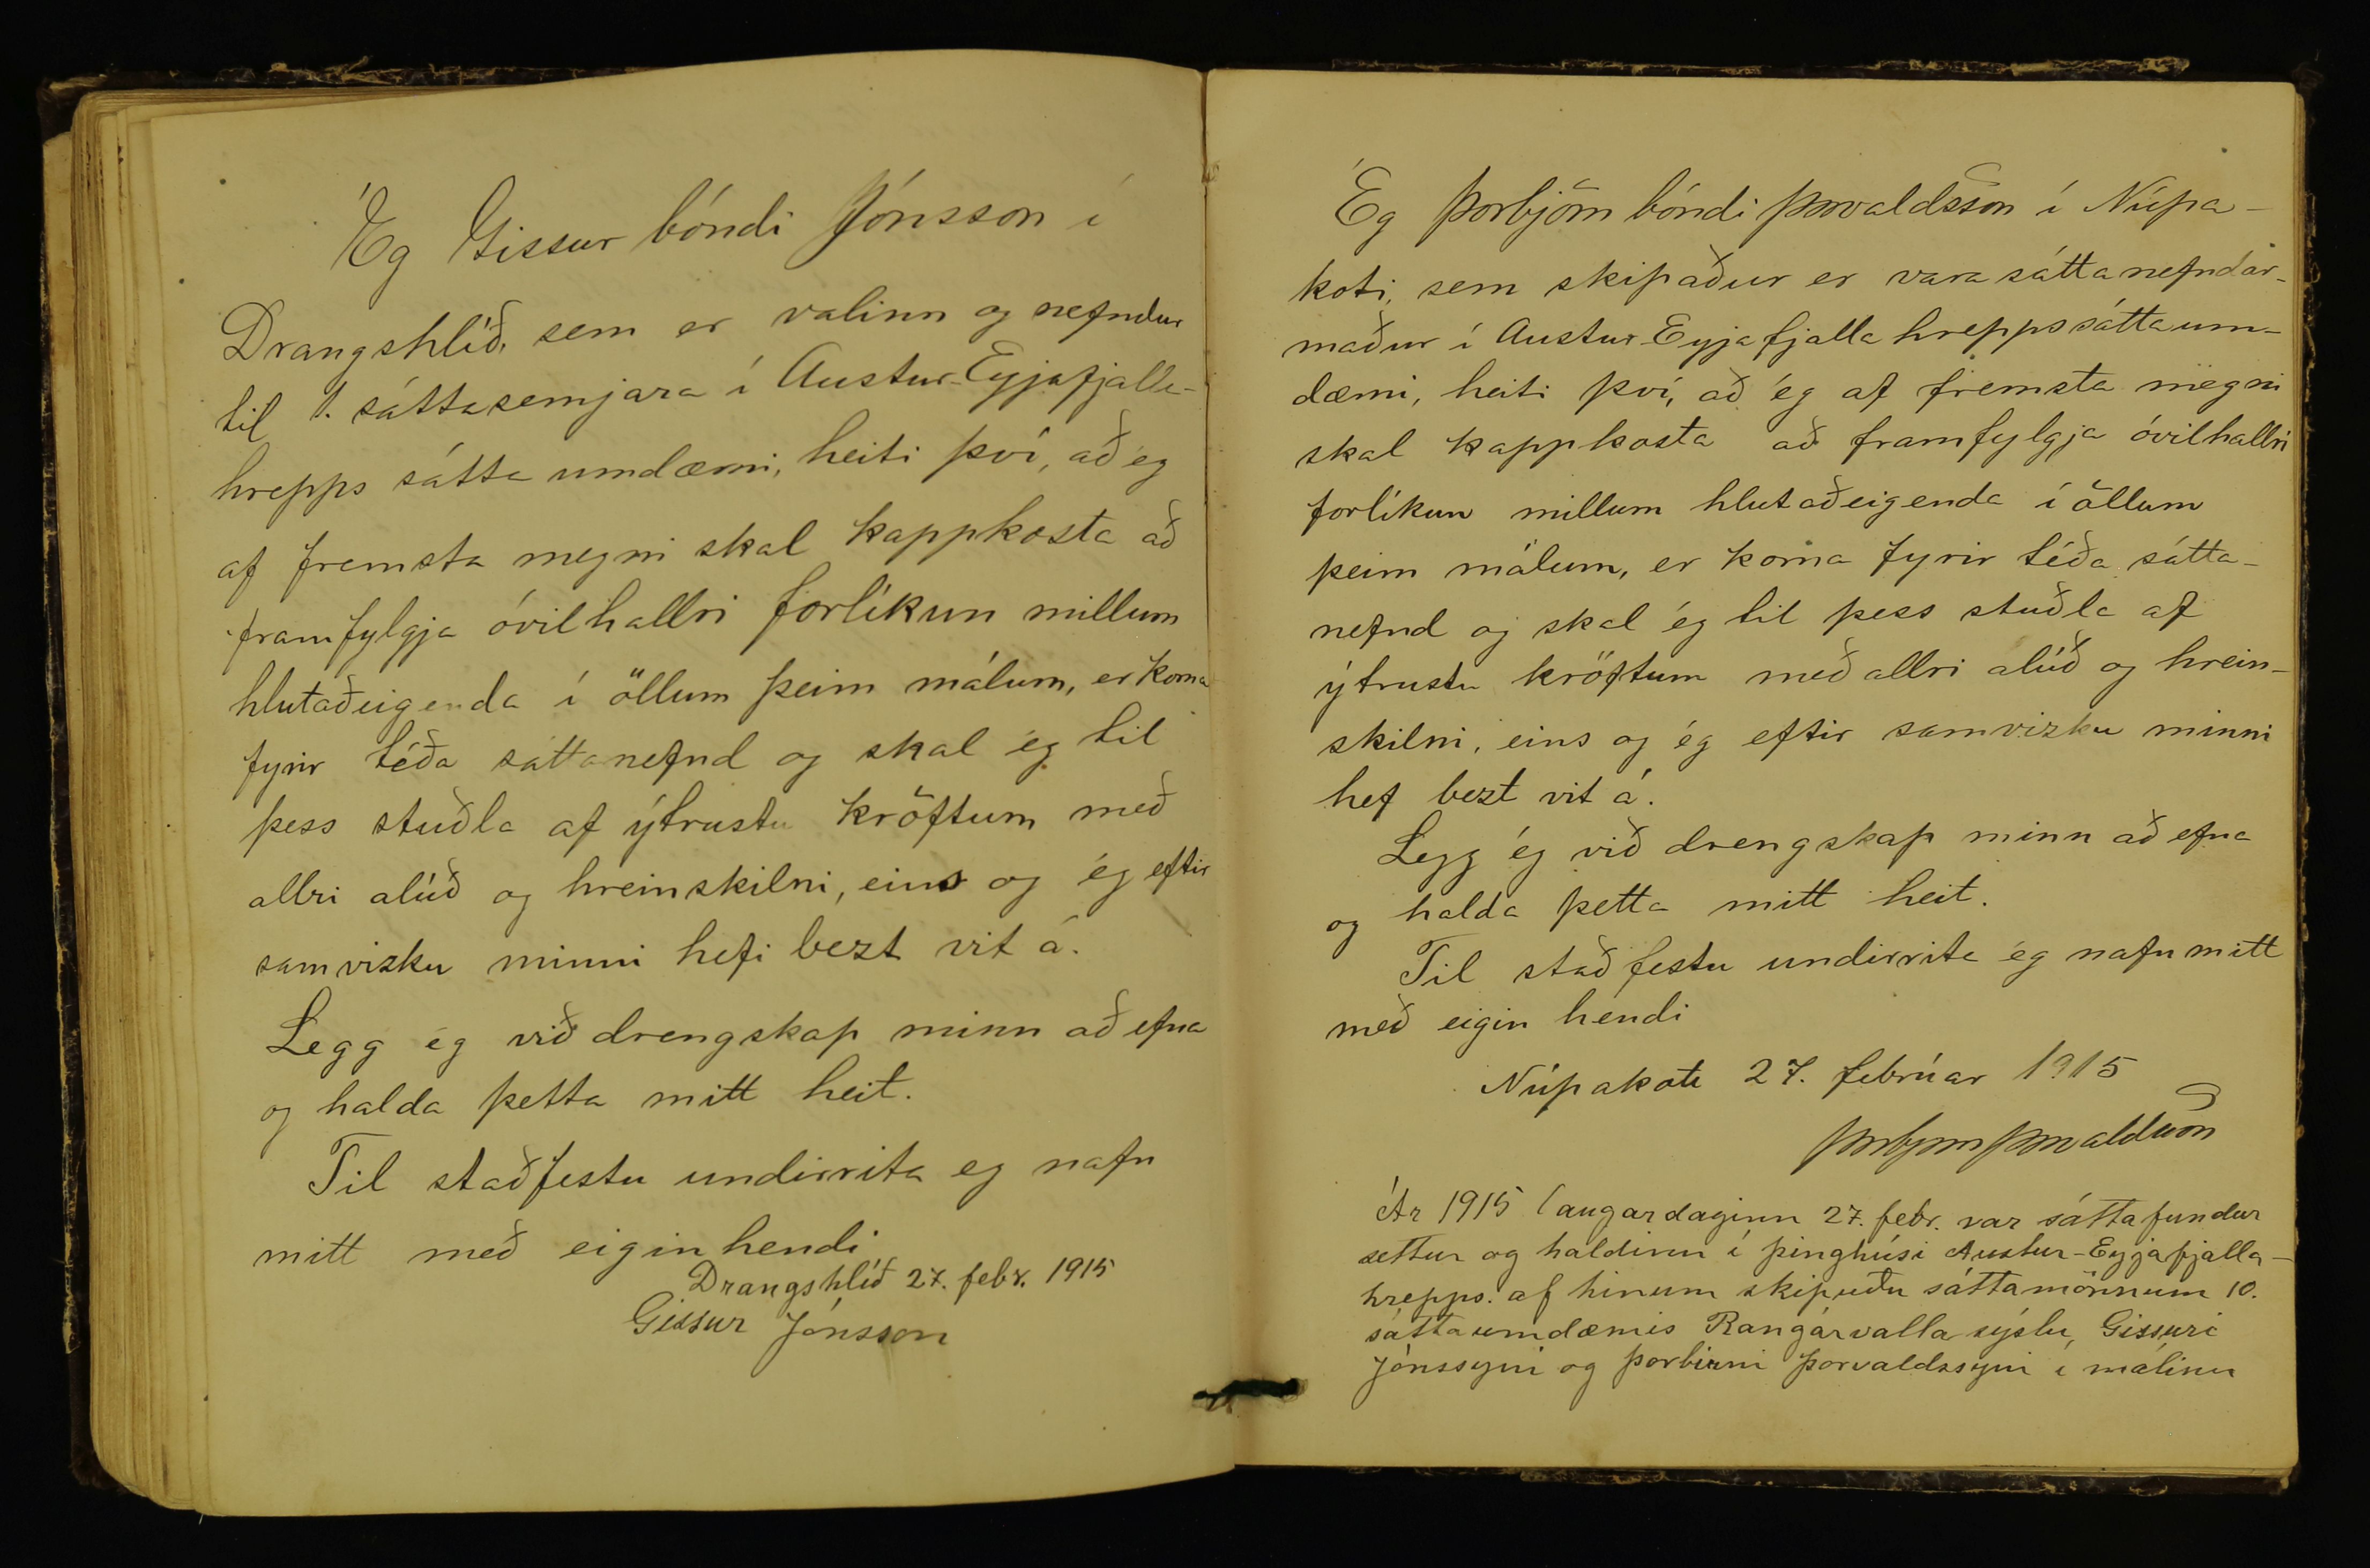 Ég Gissur bóndi Jónsson í
Drangshlíð, sem er valinn og nefndur
til 1. sáttasemjara í Austur-Eyjafjalla-
hrepps sátta umdæmi, heiti því, að ég
af fremsta megni skal kappkosta að
framfylgja óvilhallri forlíkun millum
hlutaðeigenda í öllum þeim málum, er koma
fyrir téða sáttanefnd og skal ég til
þess stuðla af ýtrustu kröftum með
allri alúð og hreinskilni, eins og ég eftir
samvizku minni hefi bezt vit á.
Legg ég við drengskap minn að efna
og halda þetta mitt heit.
Til staðfestu undirrita eg nafn
mitt með eigin hendi
Drangshlíð 27. febr. 1915
Gissur Jónsson
Ég Þorbjörn bóndi Þorvaldsson í Núpa-
koti, sem skipaður er vara sáttanefndar-
maður í Austur-Eyjafjalla hrepps sáttaum-
dæmi, heiti því, að ég af fremsta megni
skal kappkosta að framfylgja óvilhallri
forlíkun millum hlutaðeigenda í öllum
þeim málum, er koma fyrir téða sátta-
nefnd og skal ég til þess stuðla af
ýtrustu kröftum með allri alúð og hrein-
skilni, eins og ég eftir samvizku minni
hef bezt vit á.
Legg ég við drengskap minn að efna
og halda þetta mitt heit.
Til staðfestu undirrita ég nafn mitt
með eigin hendi
Núpakoti 27. febrúar 1915
Þorbjörn Þorvaldsson
Ár 1915 laugardaginn 27. febr. var sáttafundur
settur og haldinn í þinghúsi Austur-Eyjafjalla-
hrepps. af hinum skipuðu sáttamönnum 10.
sáttaumdæmis Rangárvalla sýslu, Gissuri
Jónssyni og Þorbirni Þorvaldssyni í málinu